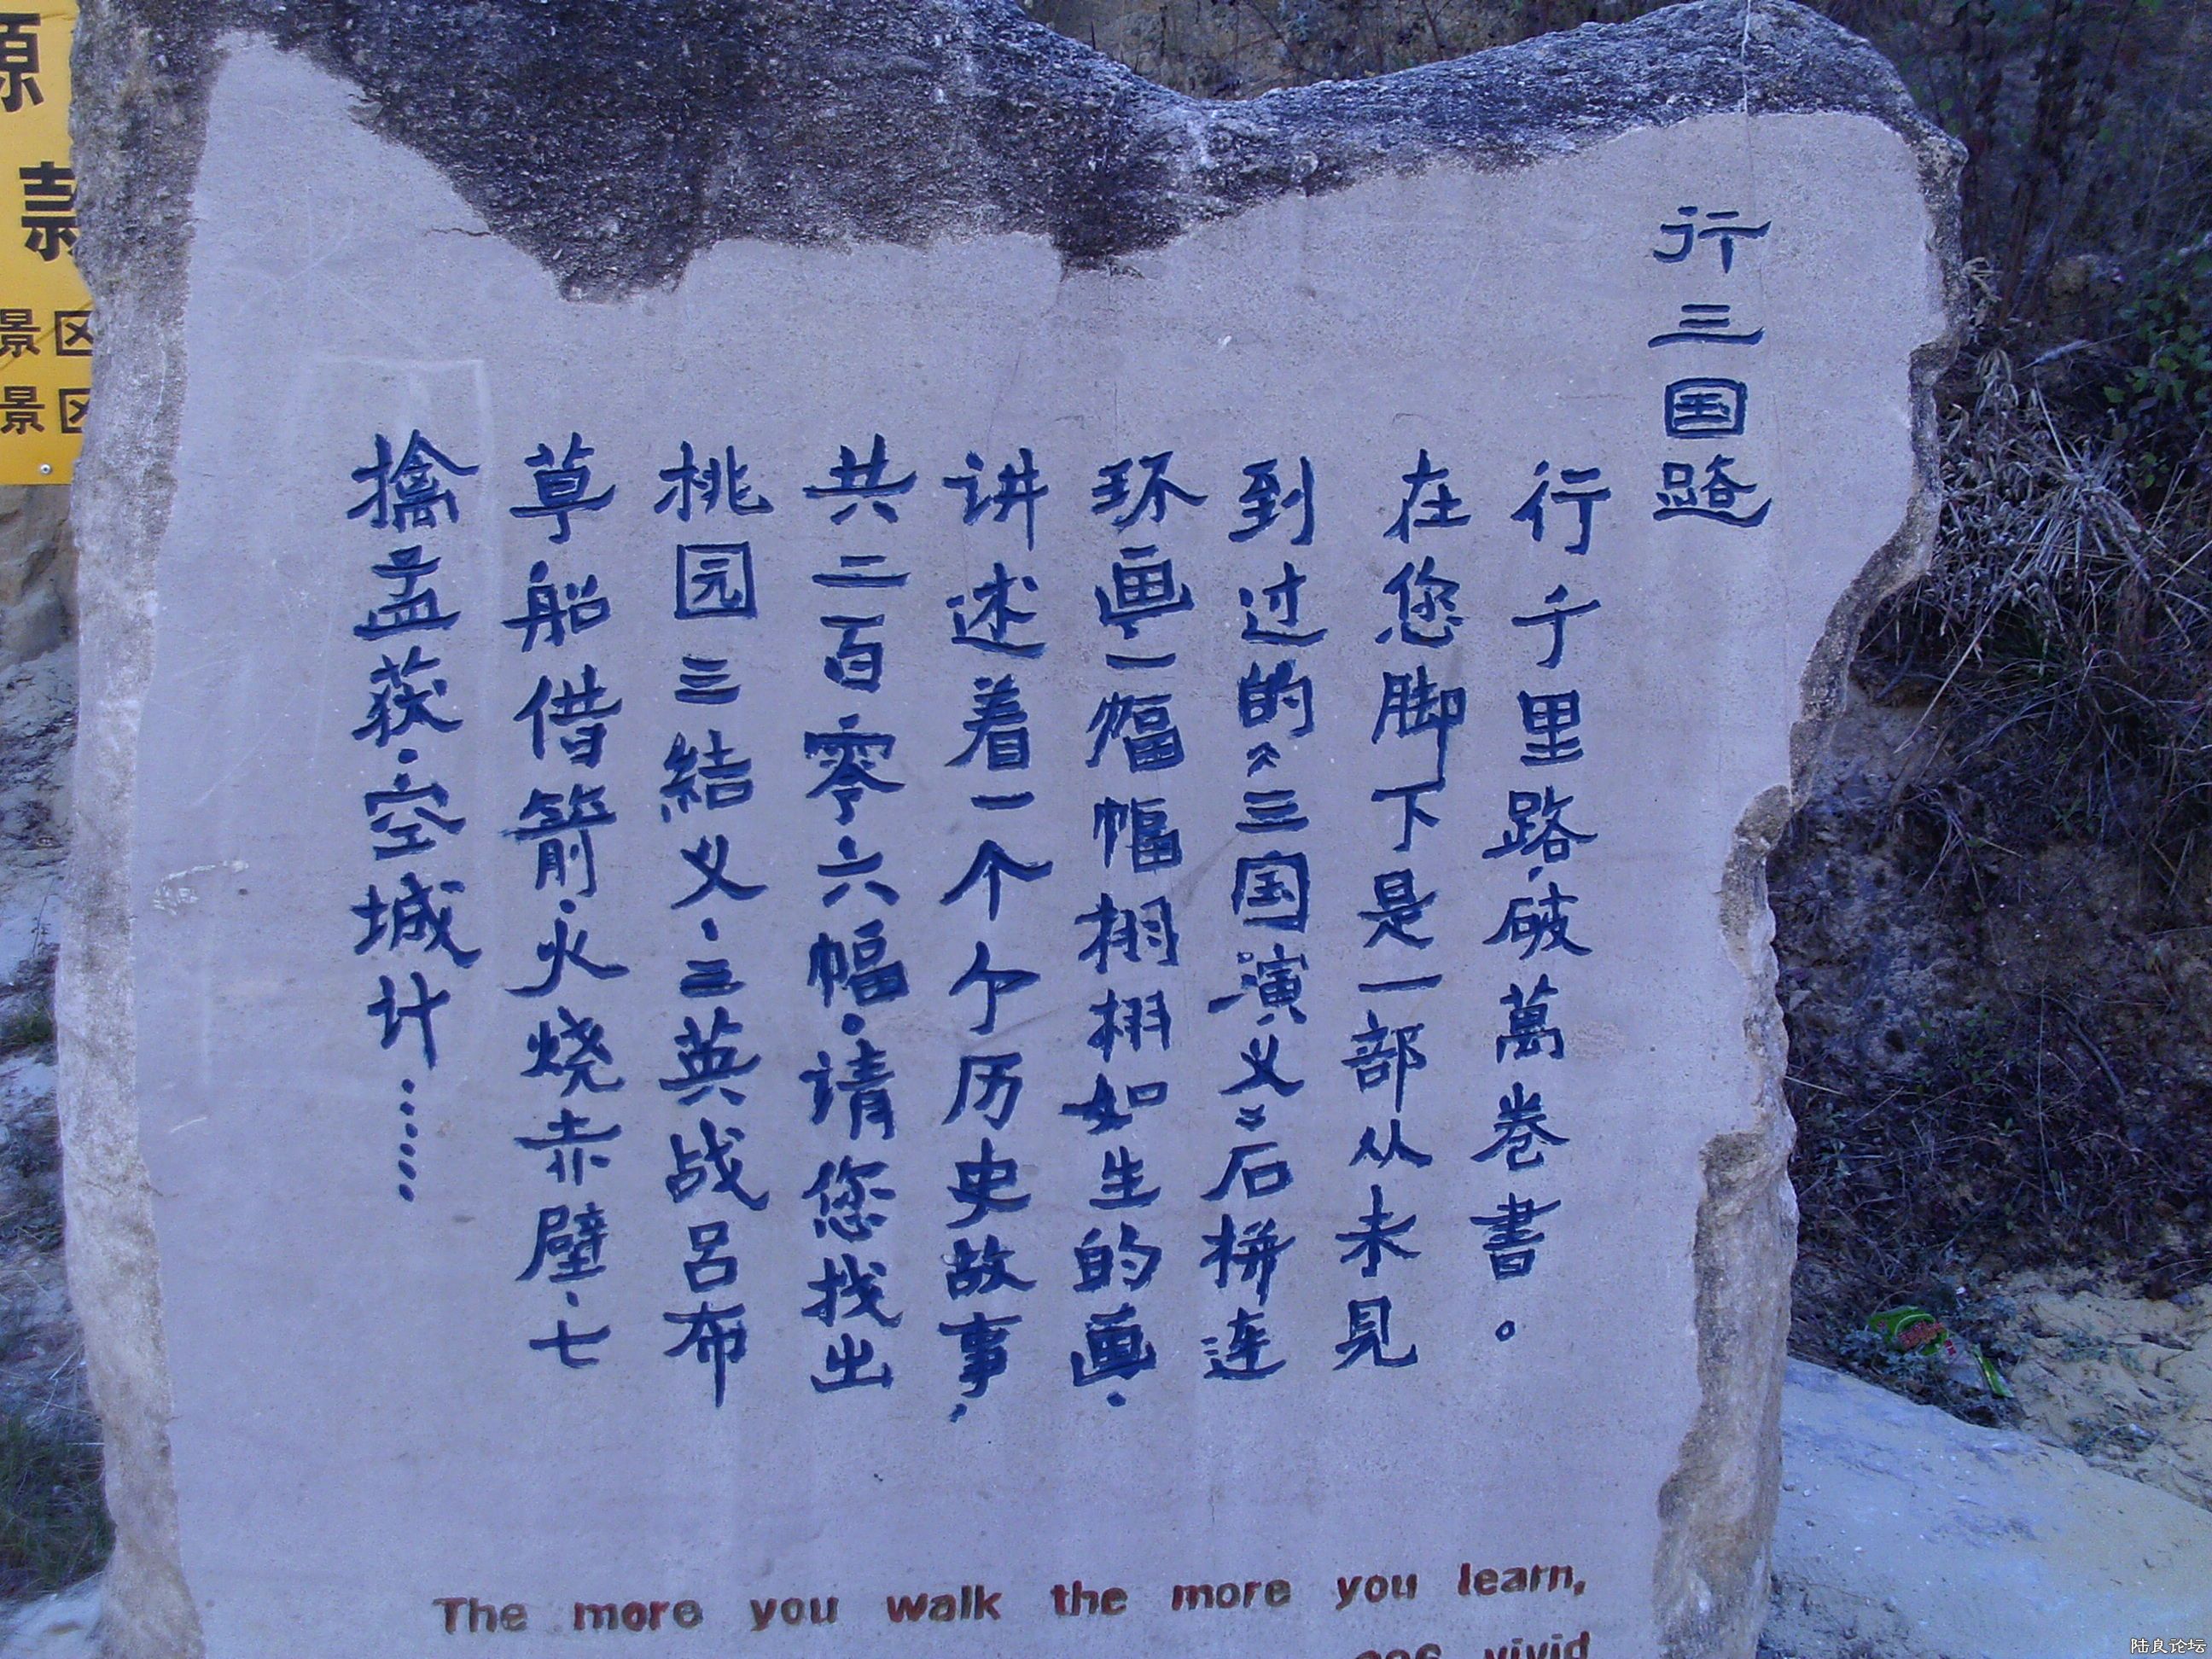 行三国路
行千里路，破萬卷書。
在您脚下是一部从未见
到过的《三国演义》石拼连
环画，一幅幅栩栩如生的画，
讲述着一个个历史故事，
共二百零六幅。请您找出
桃园三結义、三英战吕布
草船借箭、火烧赤壁、七
擒孟获、空城计……
The more you walk the more you learn,
206 vivid
源
景区
景区
陆良论坛